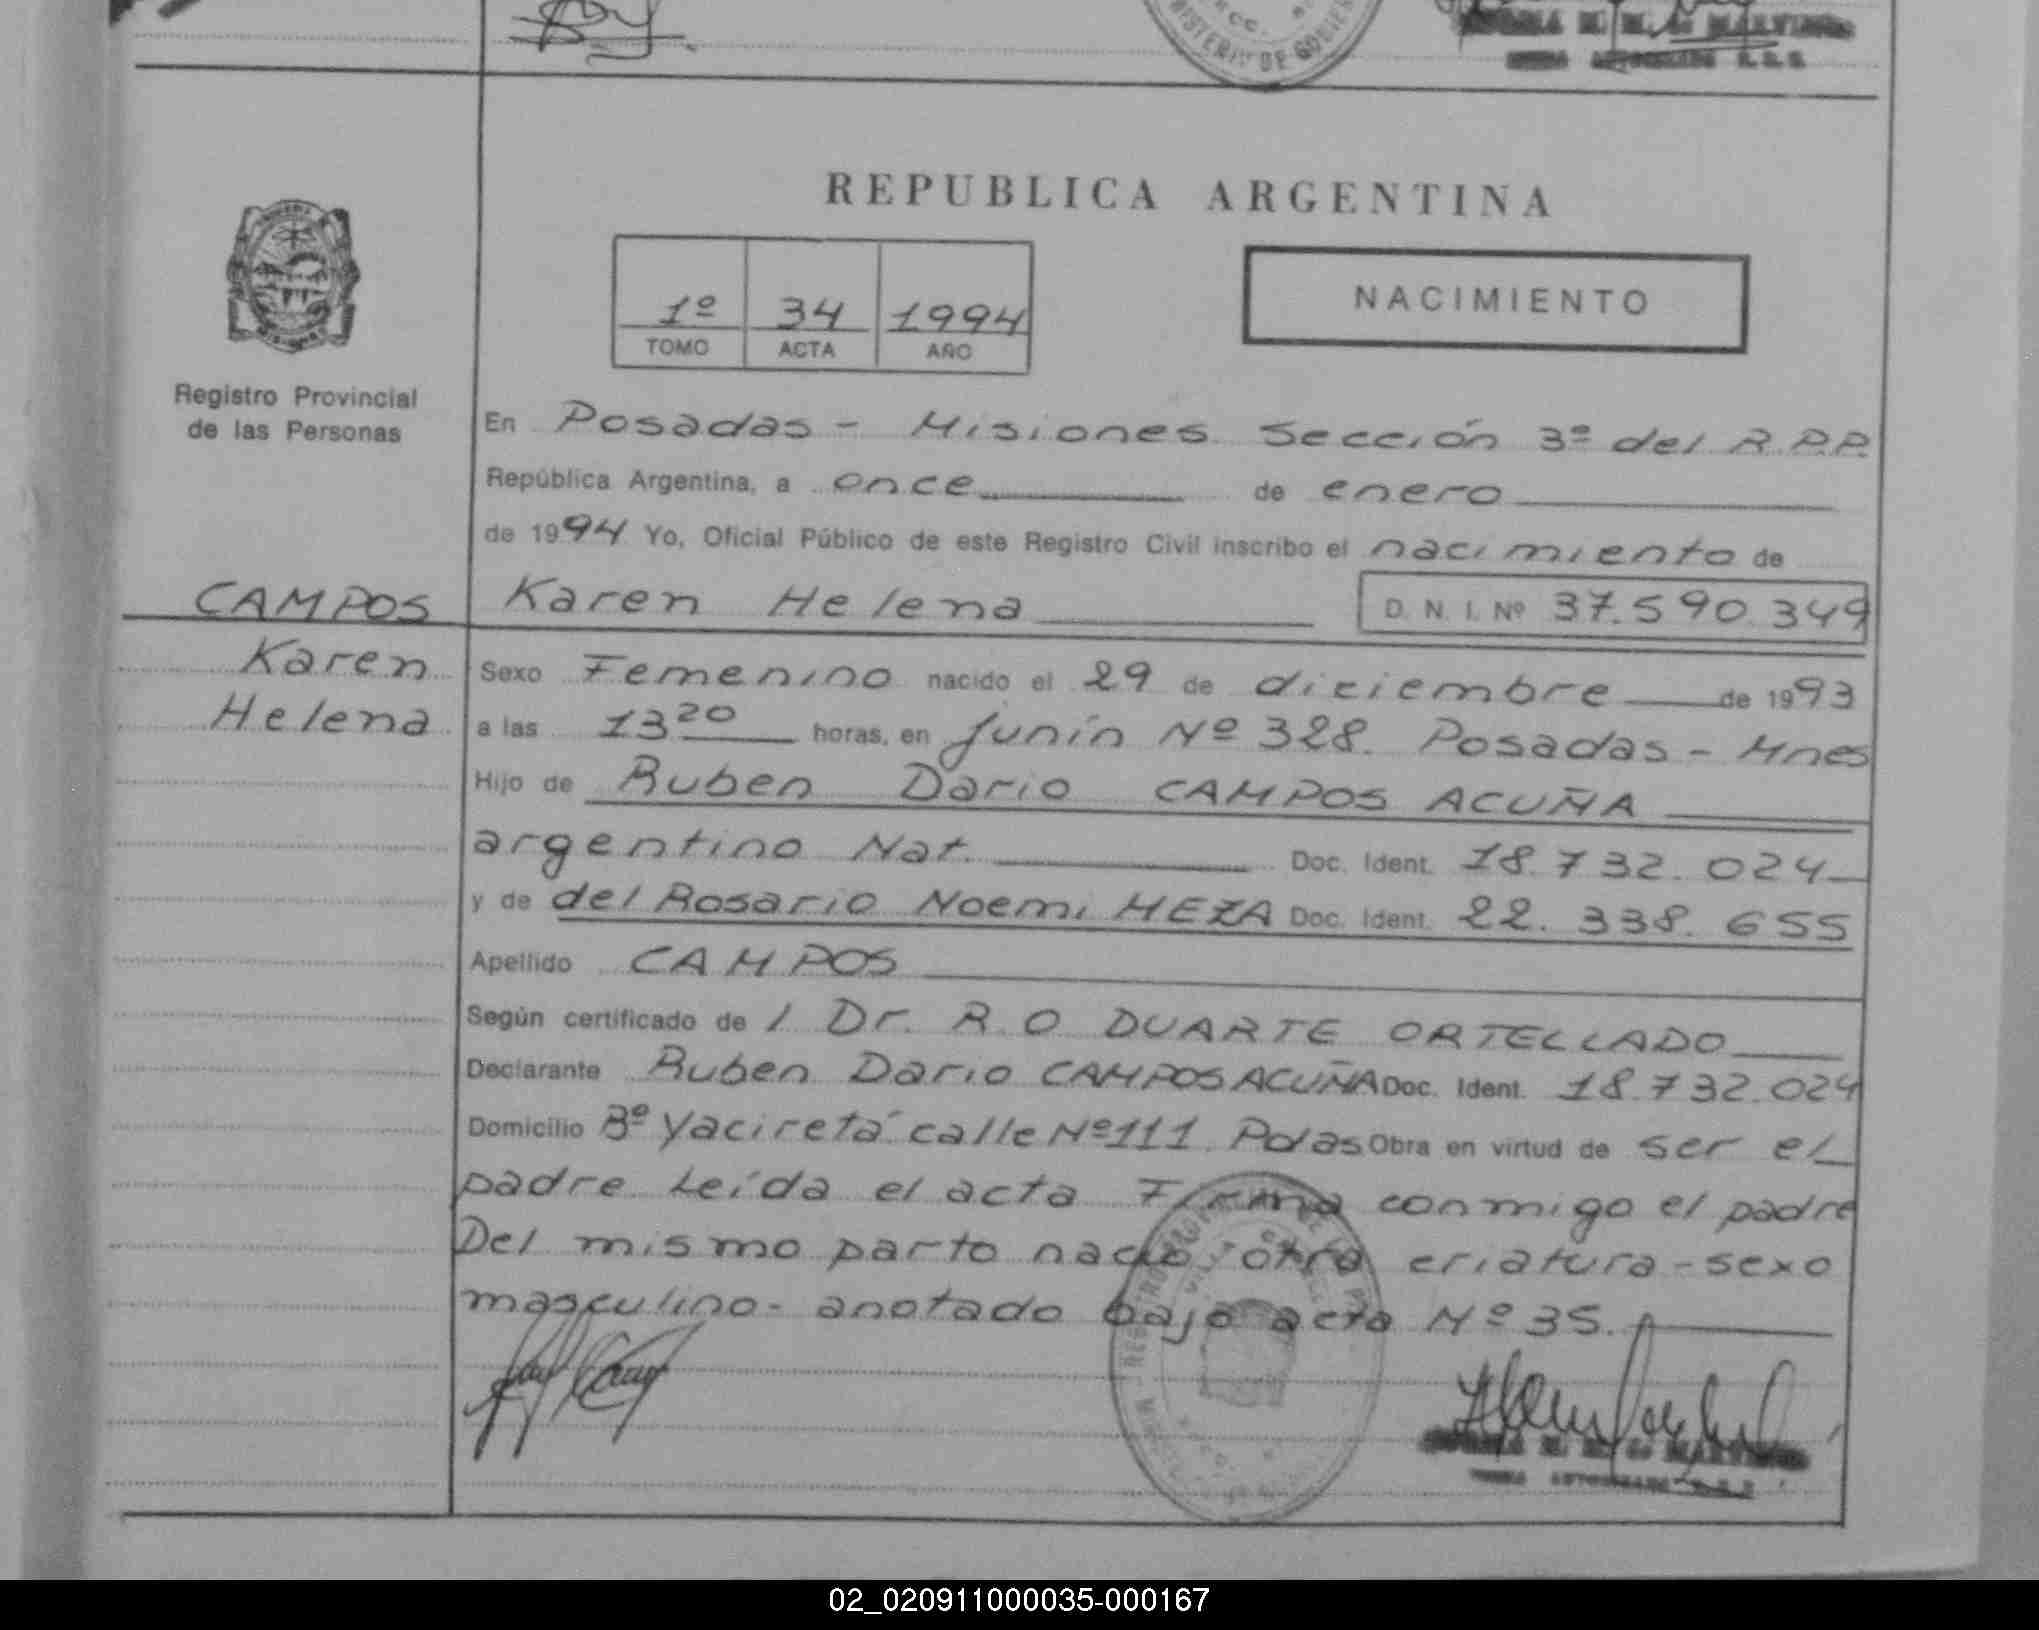 MINISTERIO DE GOBIERNO
REPUBLICA ARGENTINA
1º 34 1994
TOMO ACTA AÑO
NACIMIENTO
Registro Provincial
de las Personas
En Posadas - Misiones Sección 3º del R.P.P.
República Argentina, a once de enero
de 1994 Yo, Oficial Público de este Registro Civil inscribo el nacimiento de
CAMPOS Karen Helena D. N. I. Nº 37.590.349
Karen
Helena
Sexo Femenino nacido el 29 de diciembre de 1993
a las 13 20 horas, en Junín Nº 328. Posadas - Mnes
Hijo de Ruben Dario CAMPOS ACUÑA
argentino Nat. Doc. Ident. 18.732.024
y de del Rosario Noemi MEZA Doc. Ident. 22.338.655
Apellido CAMPOS
Según certificado de / Dr. R. O DUARTE ORTELLADO
Declarante Ruben Dario CAMPOS ACUÑA Doc. Ident. 18.732.024
Domicilio Bº Yaciretá calle Nº 111. Pdas Obra en virtud de ser el
padre Leída el acta Firma conmigo el padre
Del mismo parto nació otra criatura - sexo
masculino - anotado bajo acta Nº 35.
02_020911000035-000167